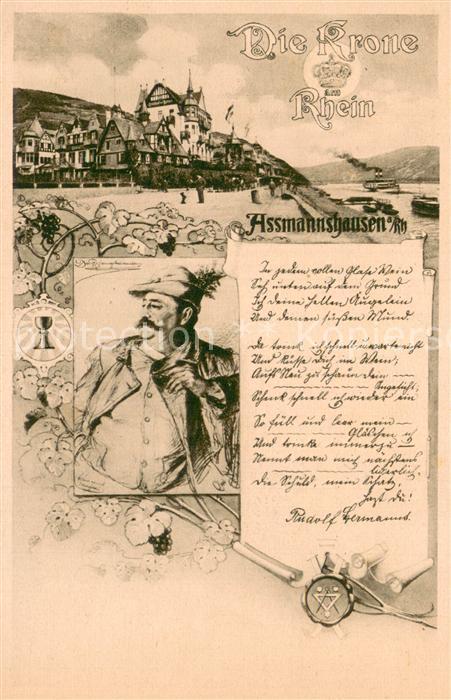 Die Krone
am
Rhein
Assmannshausen a/Rh
In jedem vollen Glase Wein
Seh unten auf dem Grund
Ich deine hellen Äugelein
Und deinen süßen Mund
Da trink ich schnell u. warte nicht
Und küsse dich im Wein,
Aufs Neu zu schaun dein
Angesicht,
Schenk schnell ich wieder ein
So füll und leer mein
Gläschen ich
Und trinke immerzu
Nennt man mich nächstens
liederlich,
Die Schuld, mein Schatz,
hast du!
Rudolf Hermanns.